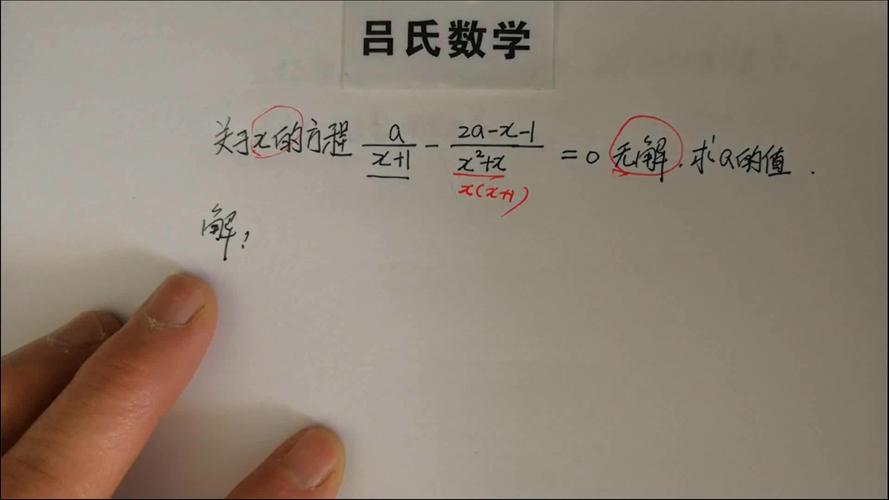 吕氏数学
关于x的方程 a/(x+1) - (2a-x-1)/(x²+x) = 0 无解. 求a的值.
x(x+1)
解: